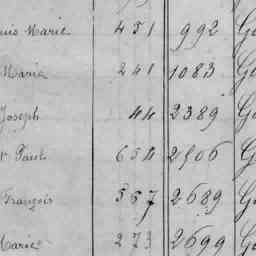 Marie 451 992
Marie 241 1083
Joseph 44 2389
Paul 654 2506
François 567 2689
Marie 273 2699